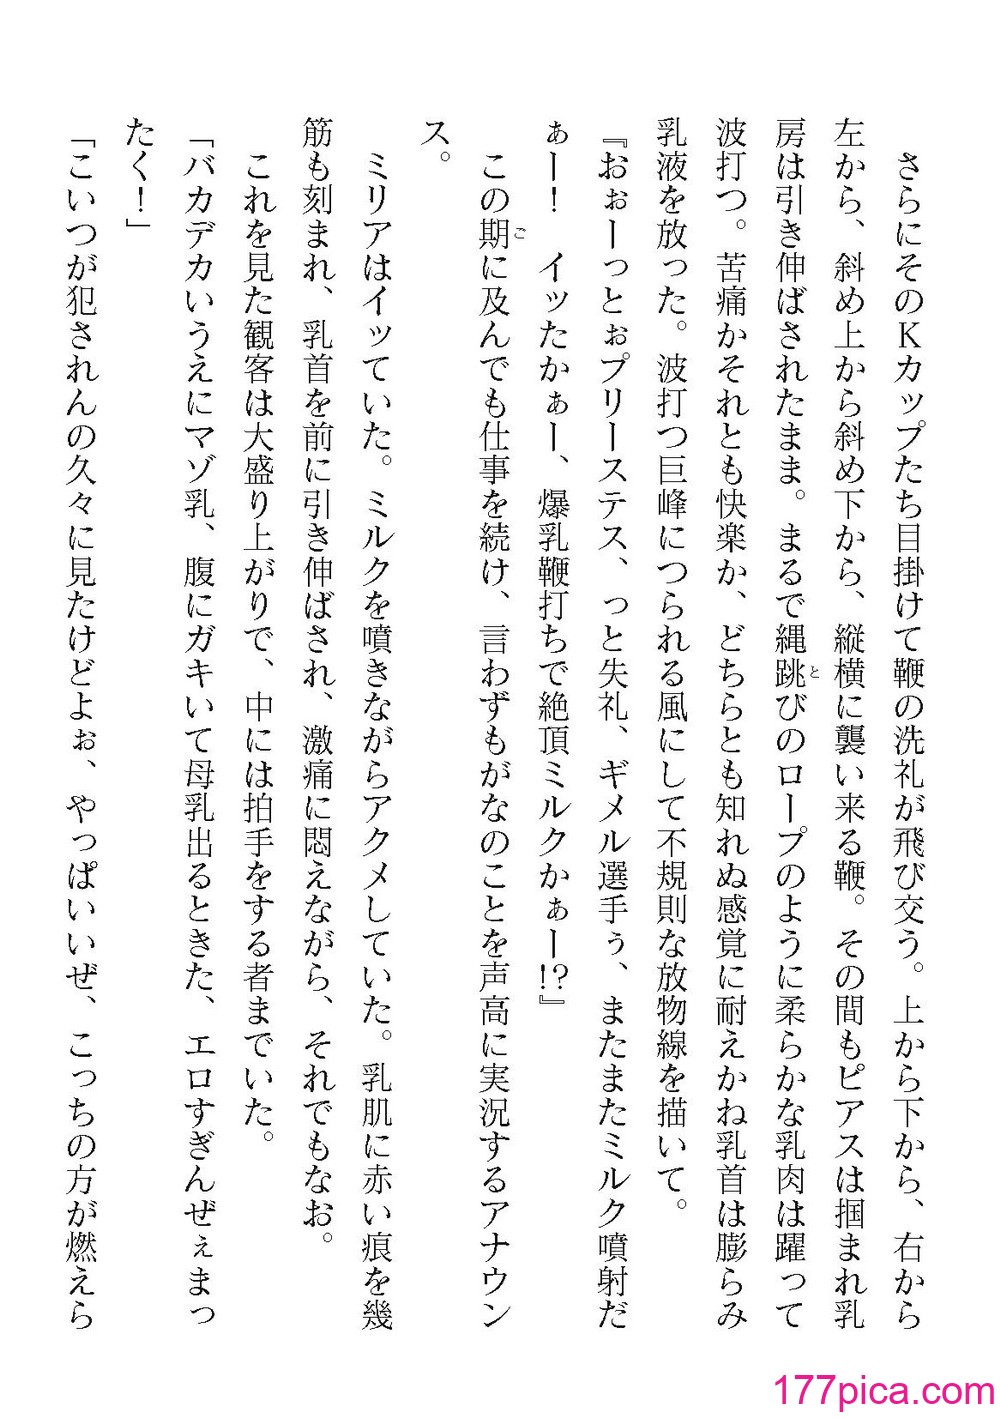 さらにそのKカップたち目掛けて鞭の洗礼が飛び交う。上から下から、右から
左から、斜め上から斜め下から、縦横に襲い来る鞭。その間もピアスは掴まれ乳
房は引き伸ばされたまま。まるで縄跳びのロープのように柔らかな乳肉は躍って
波打つ。苦痛かそれとも快楽か、どちらとも知れぬ感覚に耐えかね乳首は膨らみ
乳液を放った。波打つ巨峰につられる風にして不規則な放物線を描いて。
『おぉーっとぉプリーステス、っと失礼、ギメル選手ぅ、またまたミルク噴射だ
ぁー！　イッたかぁー、爆乳鞭打ちで絶頂ミルクかぁー!?』
この期に及んでも仕事を続け、言わずもがなのことを声高に実況するアナウン
ス。
ミリアはイッていた。ミルクを噴きながらアクメしていた。乳肌に赤い痕を幾
筋も刻まれ、乳首を前に引き伸ばされ、激痛に悶えながら、それでもなお。
これを見た観客は大盛り上がりで、中には拍手をする者までいた。
「バカデカいうえにマゾ乳、腹にガキいて母乳出るときた、エロすぎんぜぇまっ
たく！」
「こいつが犯されんの久々に見たけどよぉ、やっぱいいぜ、こっちの方が燃えら
こ
と
177pica.com